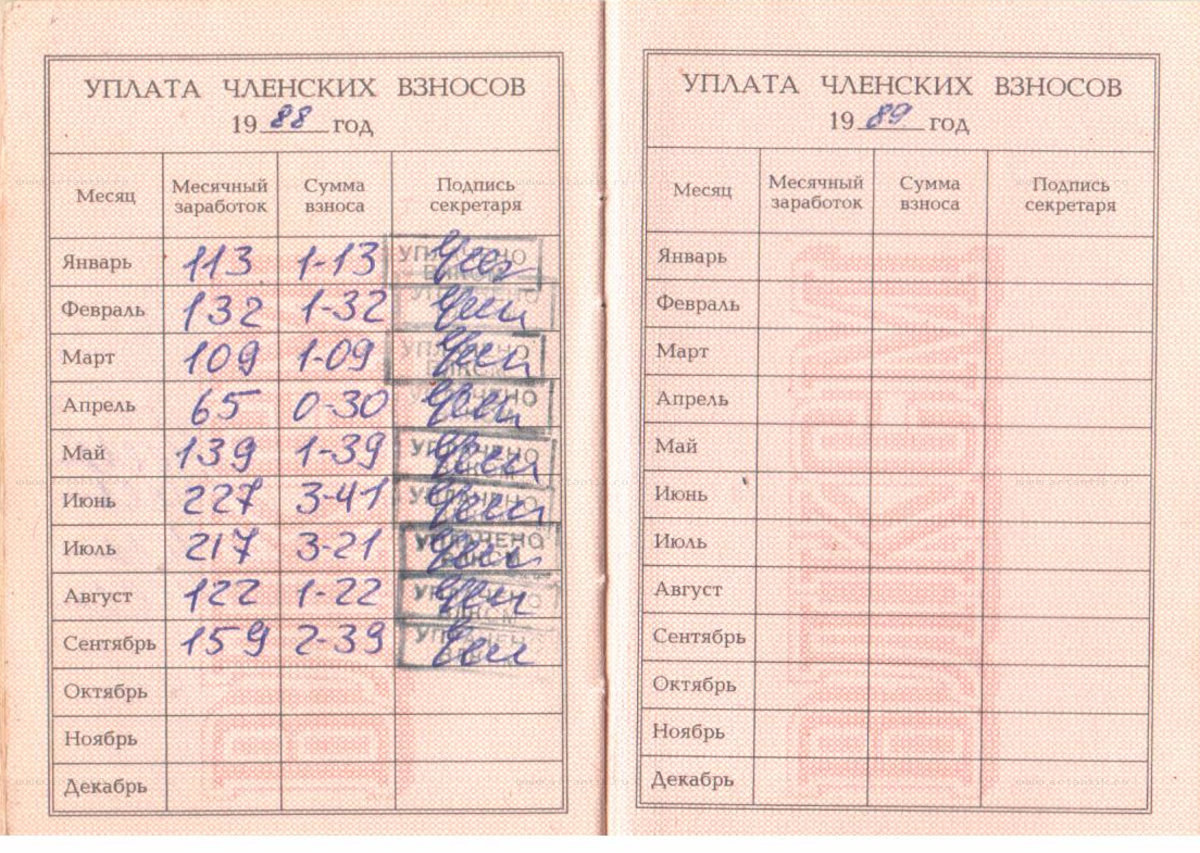 УПЛАТА ЧЛЕНСКИХ ВЗНОСОВ
1988 год
Месяц Месячный заработок Сумма взноса Подпись секретаря
Январь 113 1-13 УПЛАЧЕНО ВЛКСМ
Февраль 132 1-32 УПЛАЧЕНО
Март 109 1-09 УПЛАЧЕНО ВЛКСМ
Апрель 65 0-30 УПЛАЧЕНО ВЛКСМ
Май 139 1-39 УПЛАЧЕНО ВЛКСМ
Июнь 227 3-41 УПЛАЧЕНО ВЛКСМ
Июль 217 3-21 УПЛАЧЕНО ВЛКСМ
Август 122 1-22 УПЛАЧЕНО ВЛКСМ
Сентябрь 159 2-39 УПЛАЧЕНО ВЛКСМ
Октябрь
Ноябрь
Декабрь
ВЛКСМ
УПЛАТА ЧЛЕНСКИХ ВЗНОСОВ
1989 год
Месяц Месячный заработок Сумма взноса Подпись секретаря
Январь
Февраль
Март
Апрель
Май
Июнь
Июль
Август
Сентябрь
Октябрь
Ноябрь
Декабрь
ВЛКСМ